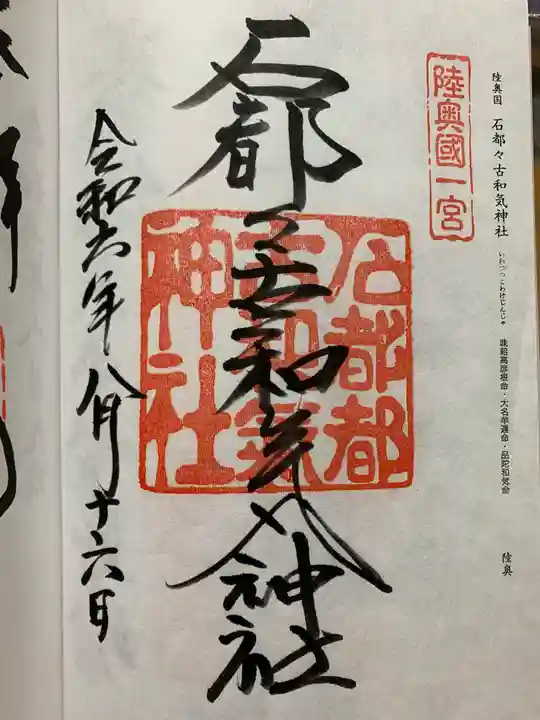 陸奥国 石都々古和気神社 いわつつこわけじんじゃ 味耜高彦根命・大名牟遅命・品陀和気命 陸奥
陸奥國一宮
石都々古和気神社
石都都
古和氣
神社
令和六年八月十六日